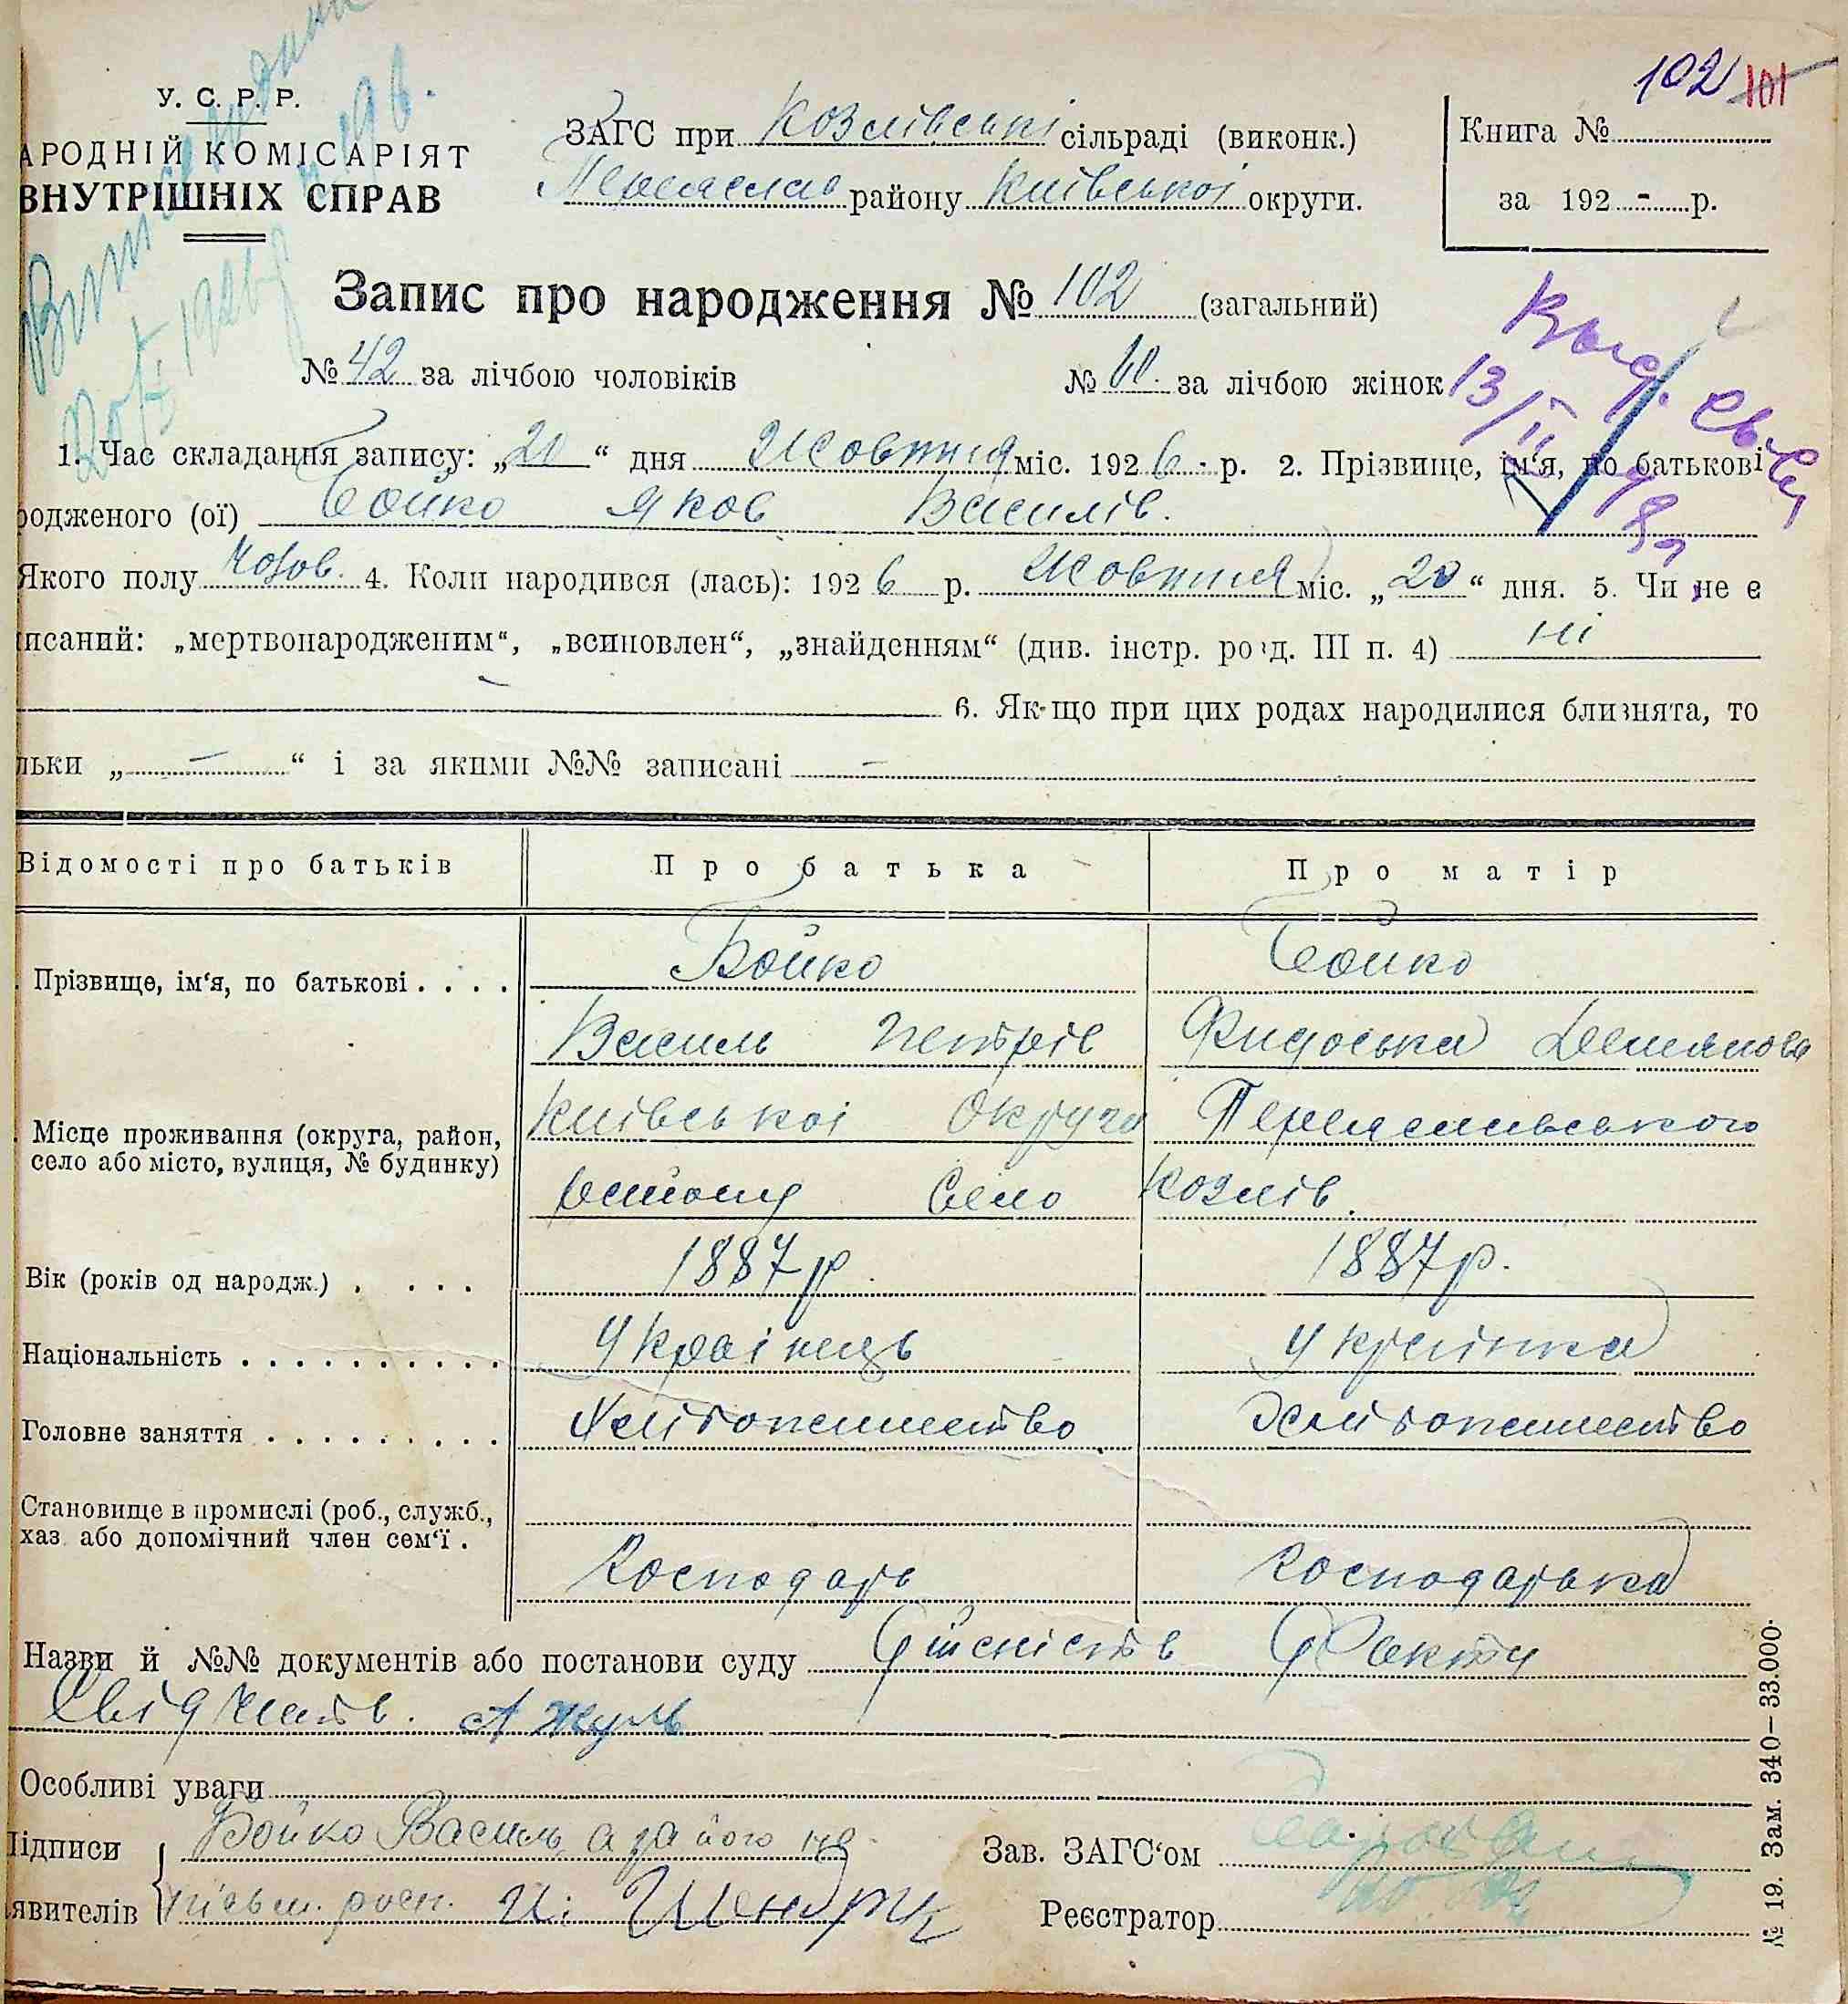 102 101
У. С. Р. Р.
АРОДНІЙ КОМІСАРІЯТ
ВНУТРІШНІХ СПРАВ
ЗАГС при Козлівські сільраді (виконк.)
Переяслав району Київської округи.
Книга №
за 192 - р.
Запис про народження № 102 (загальний)
№ 42 за лічбою чоловіків
№ 60. за лічбою жінок
Выд. св-ва
13/II
1. Час складання запису: „20“ дня Жовтня міс. 1926 р. 2. Прізвище, ім'я, по батькові
родженого (ої) Бойко Яков Василів.
Якого полу чолов. 4. Коли народився (лась): 1926 р. Жовтня міс. „20“ дня. 5. Чи не є
исаний: „мертвонародженим“, „всиновлен“, „знайденням“ (див. інстр. розд. III п. 4) ні
6. Як-що при цих родах народилися близнята, то
льки „ — “ і за якими №№ записані —
Відомості про батьків Про батька Про матір
Прізвище, ім'я, по батькові . . . . Бойко Бойко
Василь Петрів Фидоська Демянова
Місце проживання (округа, район, село або місто, вулиця, № будинку) Київської Округи Переяславського
району Село Козлів.
Вік (років од народж.) . . . . 1887 р. 1887 р.
Національність . . . . . . . . . . Українець Українка
Головне заняття . . . . . . . . . Хліборопашество Хліборопашество
Становище в промислі (роб., служб.,
хаз. або допомічний член сем'ї . Господарь Господарька
Назви й №№ документів або постанови суду Дійсність Факту
Свідчить. А Жуль
Особливі уваги
Підписи Бойко Василь, а за його не
явителів письм. росп. И.
Зав. ЗАГС'ом
Реєстратор
№ 19. Зам. 340—33.000.